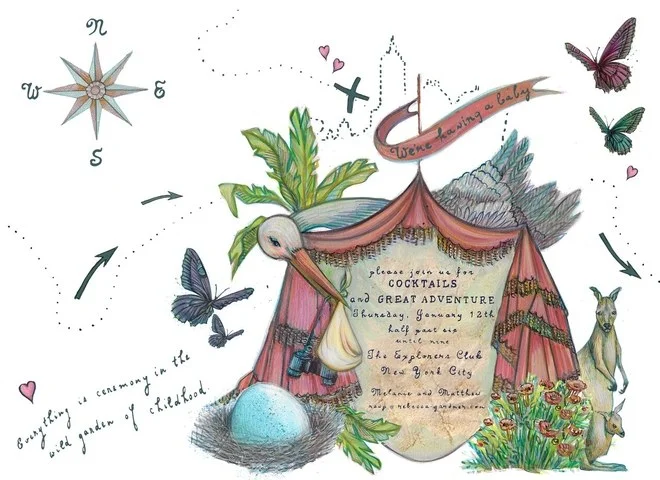 N
W E
S
We're having a baby
please join us for
COCKTAILS
and GREAT ADVENTURE
Thursday, January 12th
half past six
until nine
The Explorers Club
New York City
Melanie and Matthew
rsvp@rebeccagardner.com
Everything is ceremony in the
wild garden of childhood.